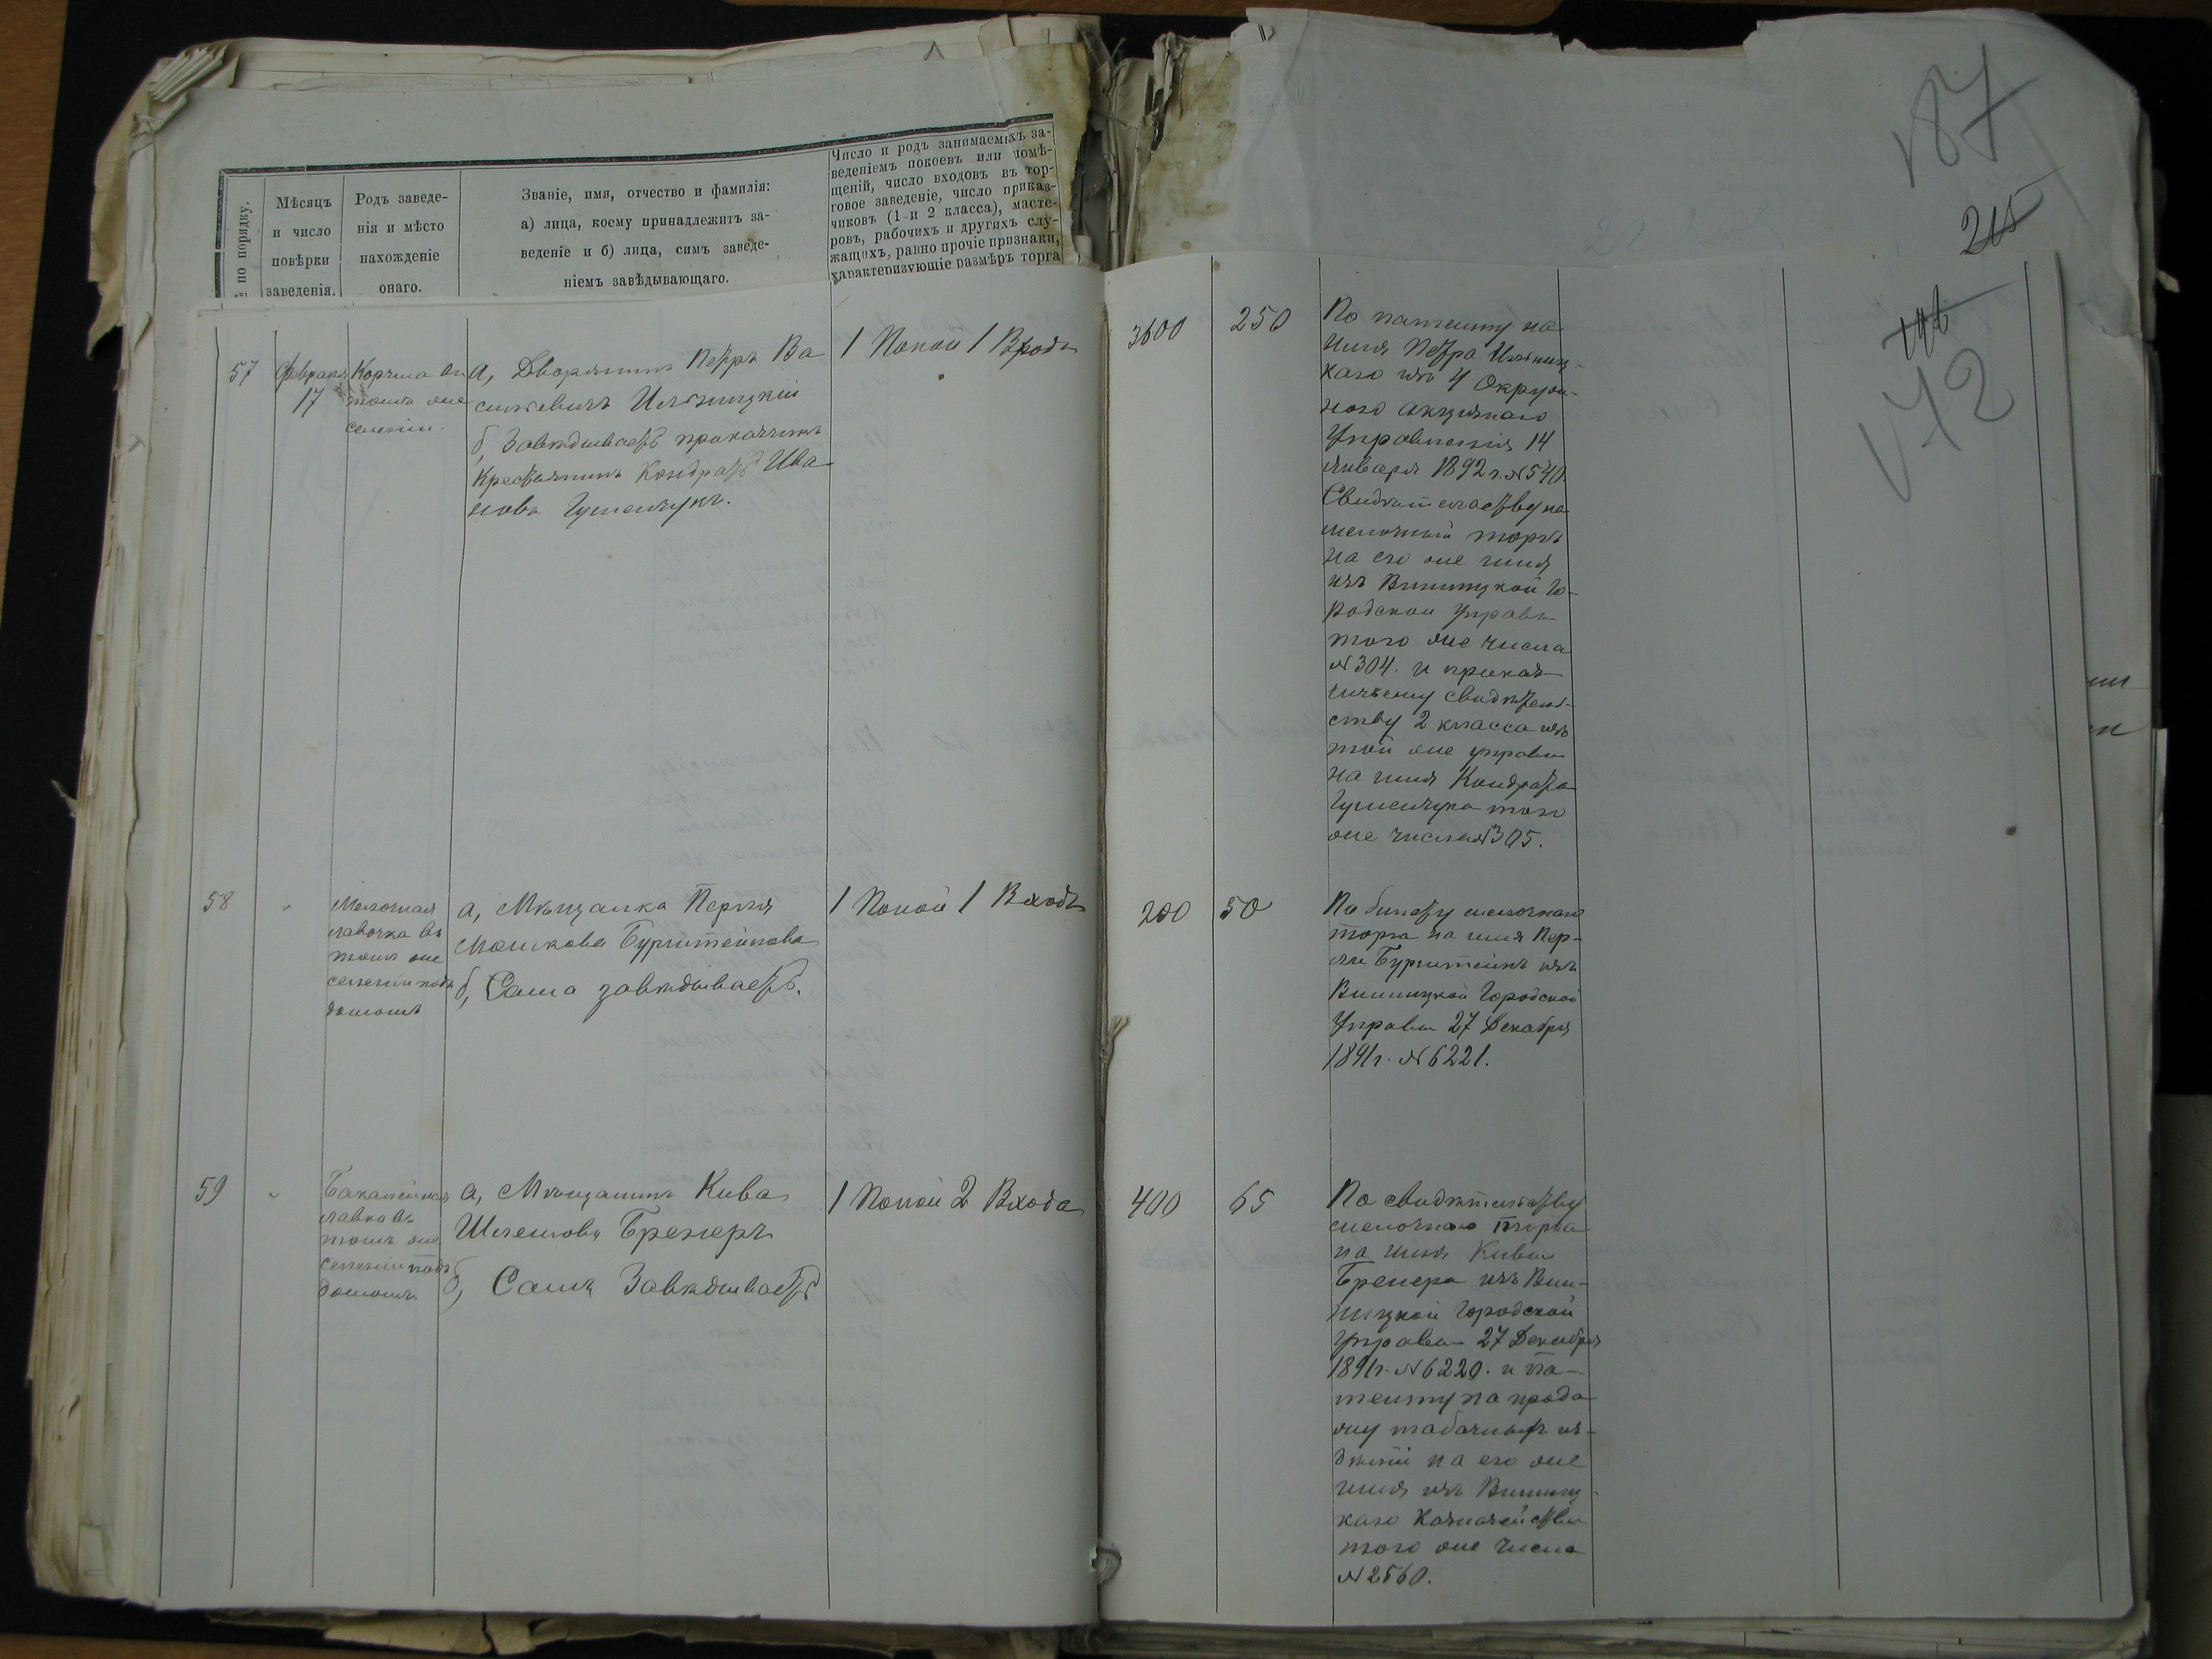 № по порядку.
Мѣсяцъ
и число
повѣрки
заведенія.
Родъ заведе-
нія и мѣсто
нахожденіе
онаго.
Званіе, имя, отчество и фамилія:
а) лица, коему принадлежитъ за-
веденіе и б) лица, симъ заведе-
ніемъ завѣдывающаго.
Число и родъ занимаемыхъ за-
веденіемъ покоевъ или помѣ-
щеній, число входовъ въ тор-
говое заведеніе, число приказ-
чиковъ (1 и 2 класса), масте-
ровъ, рабочихъ и другихъ слу-
жащихъ, равно прочіе признаки,
характеризующіе размѣръ торга
187
215
172
57
Февраля
17
Корчма въ
томъ же
селеніи.
а, Дворянинъ Петръ Ва
сильевичъ Ильницкій
б, Завѣдываетъ приказчикъ
Крестьянинъ Кондратъ Ива
новъ Гуменчукъ.
1 Покой 1 Входъ
3600
250
По патенту на
имя Петра Ильниц-
каго изъ 4 Окруж-
ного Акцизнаго
Управленія 14
января 1892 г. № 540.
Свидѣтельству на
мелочный торгъ
на его же имя
изъ Винницкой Го-
родской Управы
того же числа
№ 304. и приказ-
чичьему свидѣтель-
ству 2 класса изъ
той же управы
на имя Кондрата
Гуменчука того
же числа № 305.
58
"
Мелочная
лавочка въ
томъ же
селеніи подъ
домомъ
а, Мѣщанка Перля
Мошкова Бурштейнова
б, Сама завѣдываетъ.
1 Покой 1 Входъ
200
50
По билету мелочнаго
торга на имя Пер-
ли Бурштейнъ изъ
Винницкой Городской
Управы 27 Декабря
1891 г. № 6221.
59
"
Бакалейная
лавка въ
томъ же
селеніи подъ
домомъ
а, Мѣщанинъ Кива
Шлемовъ Бренеръ
б, Самъ Завѣдываетъ
1 Покой 2 Входа
400
65
По свидѣтельству
мелочнаго торга
на имя Кивы
Бренера изъ Вин-
ницкой Городской
Управы 27 Декабря
1891 г. № 6220. и па-
тенту на прода
жу табачныхъ из-
дѣлій на его же
имя изъ Винниц-
каго Казначейства
того же числа
№ 2560.